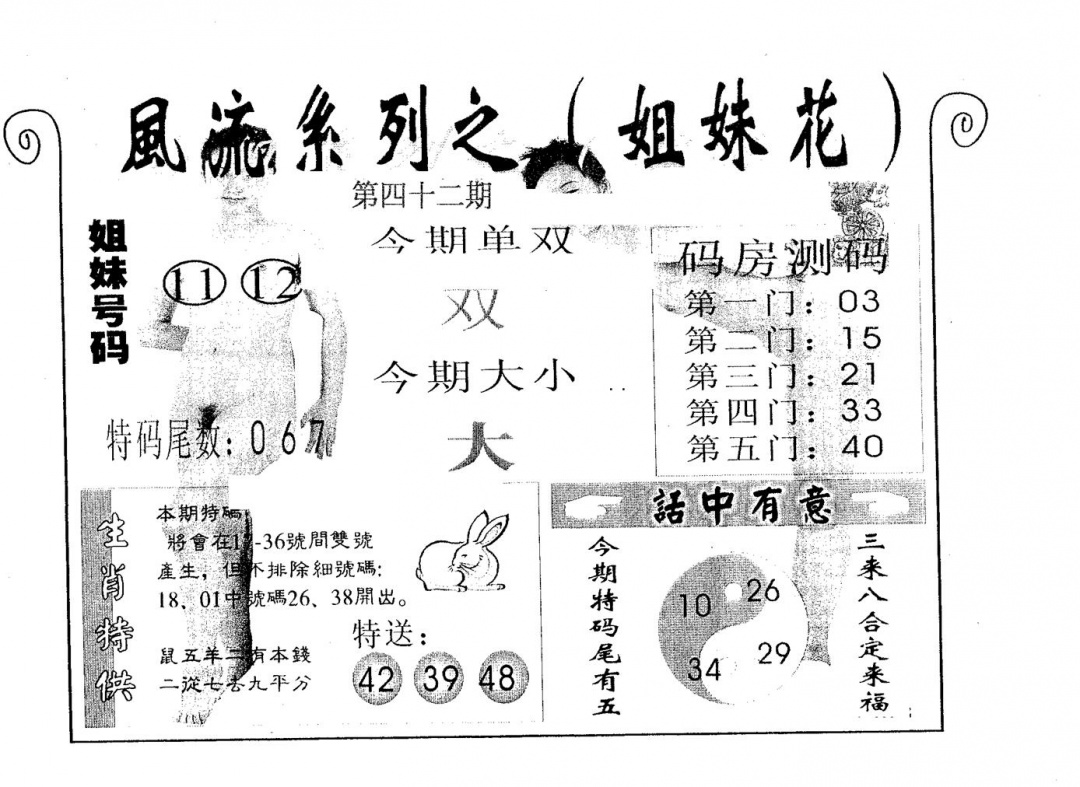 風流系列之（姐妹花）
第四十二期
姐妹号码
11 12
特码尾数：067
今期单双
双
今期大小
大
码房测码
第一门：03
第二门：15
第三门：21
第四门：33
第五门：40
生肖特供
本期特碼
將會在1-36號間雙號
產生，但不排除細號碼：
18、01中號碼26、38開出。
鼠五羊二有本錢
二從七去九平分
特送：
42 39 48
話中有意
今期特码尾有五
10 26
34 29
三来八合定来福